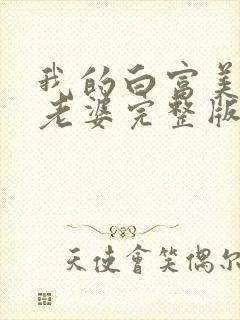 我的白富美
老婆完整版
天使會笑偶尔